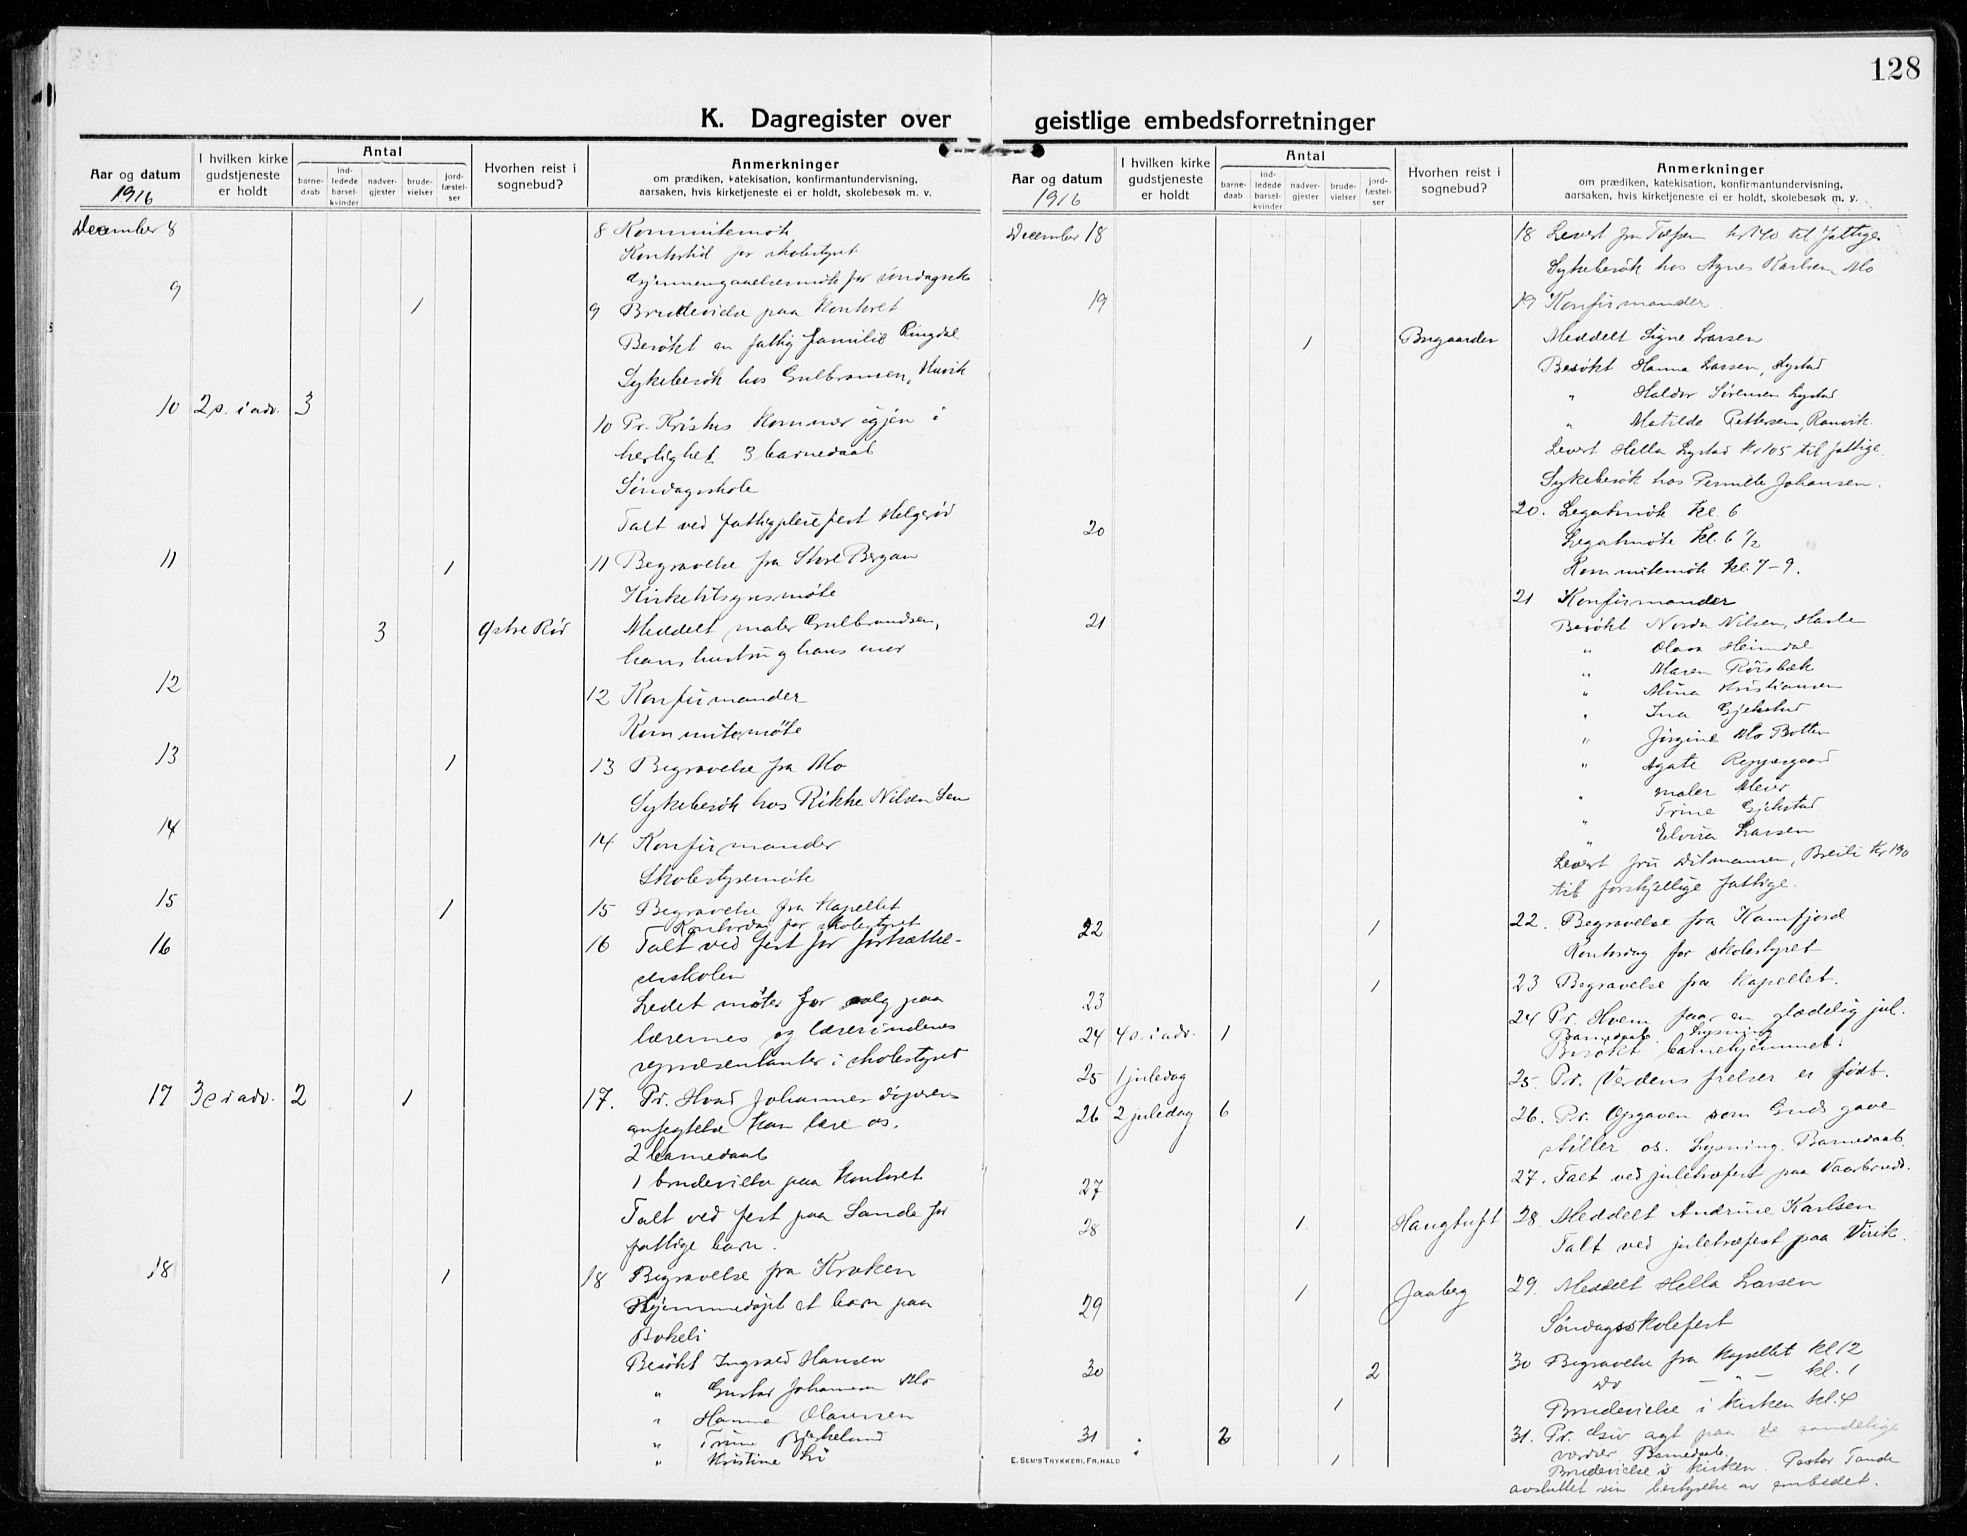 128
K. Dagregister over geistlige embedsforretninger
Aar og datum
1916
I hvilken kirke gudstjeneste er holdt
Antal
barne-daab
ind-ledede barsel-kvinder
nadver-gjester
brude-vielser
jord-fæstel-ser
Hvorhen reist i sognebud?
Anmerkninger
om prædiken, katekisation, konfirmantundervisning,
aarsaken, hvis kirketjeneste ei er holdt, skolebesøk m. v.
December 8
8 Kommitemøte
Kontortid for skolestyret
9 1
9 Brudevielse paa kontoret
Besøkt en fattig familie Ringdal
Sykebesøk hos Gulbransen,
10 2 s. i adv. 3
10 Pr. Kristus kommer igjen i
herlighet 3 barnedaab
Søndagsskole
Talt ved fattigpleiefest Helgerød
11 1
11 Begravelse fra Store Bergan
Kirketilsynsmøte
3 Østre Rød
Meddelt maler Gulbrandsen,
hans hustru og hans mor
12
12 Konfirmander
Kommitemøte
13 1
13 Begravelse fra Mo
Sykebesøk hos Rikke Nilsen
14
14 Konfirmander
Skolestyremøte
15 1
15 Begravelse fra kapellet
Kontordag for skolestyret
16
16 Talt ved fest for fortsættel-
sesskolen
Ledet møter for valg paa
lærernes og lærerindenes
repræsentanter i skolestyret
17 3 s i adv. 2 1
17. Pr. Hvad Johannes døperens
anfegtelse kan lære os.
2 barnedaab
1 brudevielse paa kontoret
Talt ved fest paa Sande for
fattige barn.
18 1
18 Begravelse fra Kraken
Hjemmedøpt et barn paa
Bokeli
Besøkt Ingvald Hansen
" Gustav Johansen Mo
" Hanna Olaussen
" Trine Bjerkelund
" Kristine
Aar og datum
1916
I hvilken kirke gudstjeneste er holdt
Antal
barne-daab
ind-ledede barsel-kvinder
nadver-gjester
brude-vielser
jord-fæstel-ser
Hvorhen reist i sognebud?
Anmerkninger
om prædiken, katekisation, konfirmantundervisning,
aarsaken, hvis kirketjeneste ei er holdt, skolebesøk m. v.
December 18
18 Levert fru kr 140 til fattige
Sykebesøk hos Agnes Karlsen, Mo
19
19 Konfirmander
1 Bugaarden
Meddelt Signe Larsen
Besøkt Hanna Larsen, Lystad
" Halvor Sørensen Lystad
" Matilde Pettersen, Ranvik
Levert Hella Lystad kr 105 til fattige.
Sykebesøk hos Pernille Johansen.
20
20. Legatmøte kl. 6
Legatmøte kl. 6 1/2
Kommitemøte kl. 7 - 9.
21
21 Konfirmander
Besøkt Norda Nilsen, Hasle
" Olava Heimdal
" Maren Röisbæk
" Mina Kristiansen
" Ina Gjekstad
" Jørgine Mo Botten
" Agate
" maler Meier
Trine Gjekstad
" Elvira Larsen
Levert fru Ditmansen, Breili kr 190
til forskjellige fattige.
22 1
22. Begravelse fra Kamfjord
Kontordag for skolestyret
23 1
23 Begravelse fra kapellet.
24 4 s. i adv. 1
24 Pr. Hvem faar en glædelig jul.
Barnedaab. Lysning
Besøkt barnehjemmet.
25 1 juledag
25. Pr. Verdens frelser er født.
26 2 juledag 6
26. Pr. Opgaven som Guds gave
stiller os. Lysning. Barnedaab
27
27. Talt ved juletræfest paa
28 1. Haugtuft
28. Meddelt Andrine Karlsen
Talt ved juletræfest paa Virik.
29 1 Jaaberg
29. Meddelt Hella Larsen
Søndagsskolefest
30 2
30 Begravelse fra kapellet kl 12
Do — " — kl. 1
1
Brudevielse i kirken kl. 4
31 2
31. Pr. Giv agt paa de sandelige
værdier Barnedaab.
1
Brudevielse i kirken. Pastor Tande
avsluttet sin bestyrelse av embedet.
E. SEM'S TRYKKERI, FR.HALD